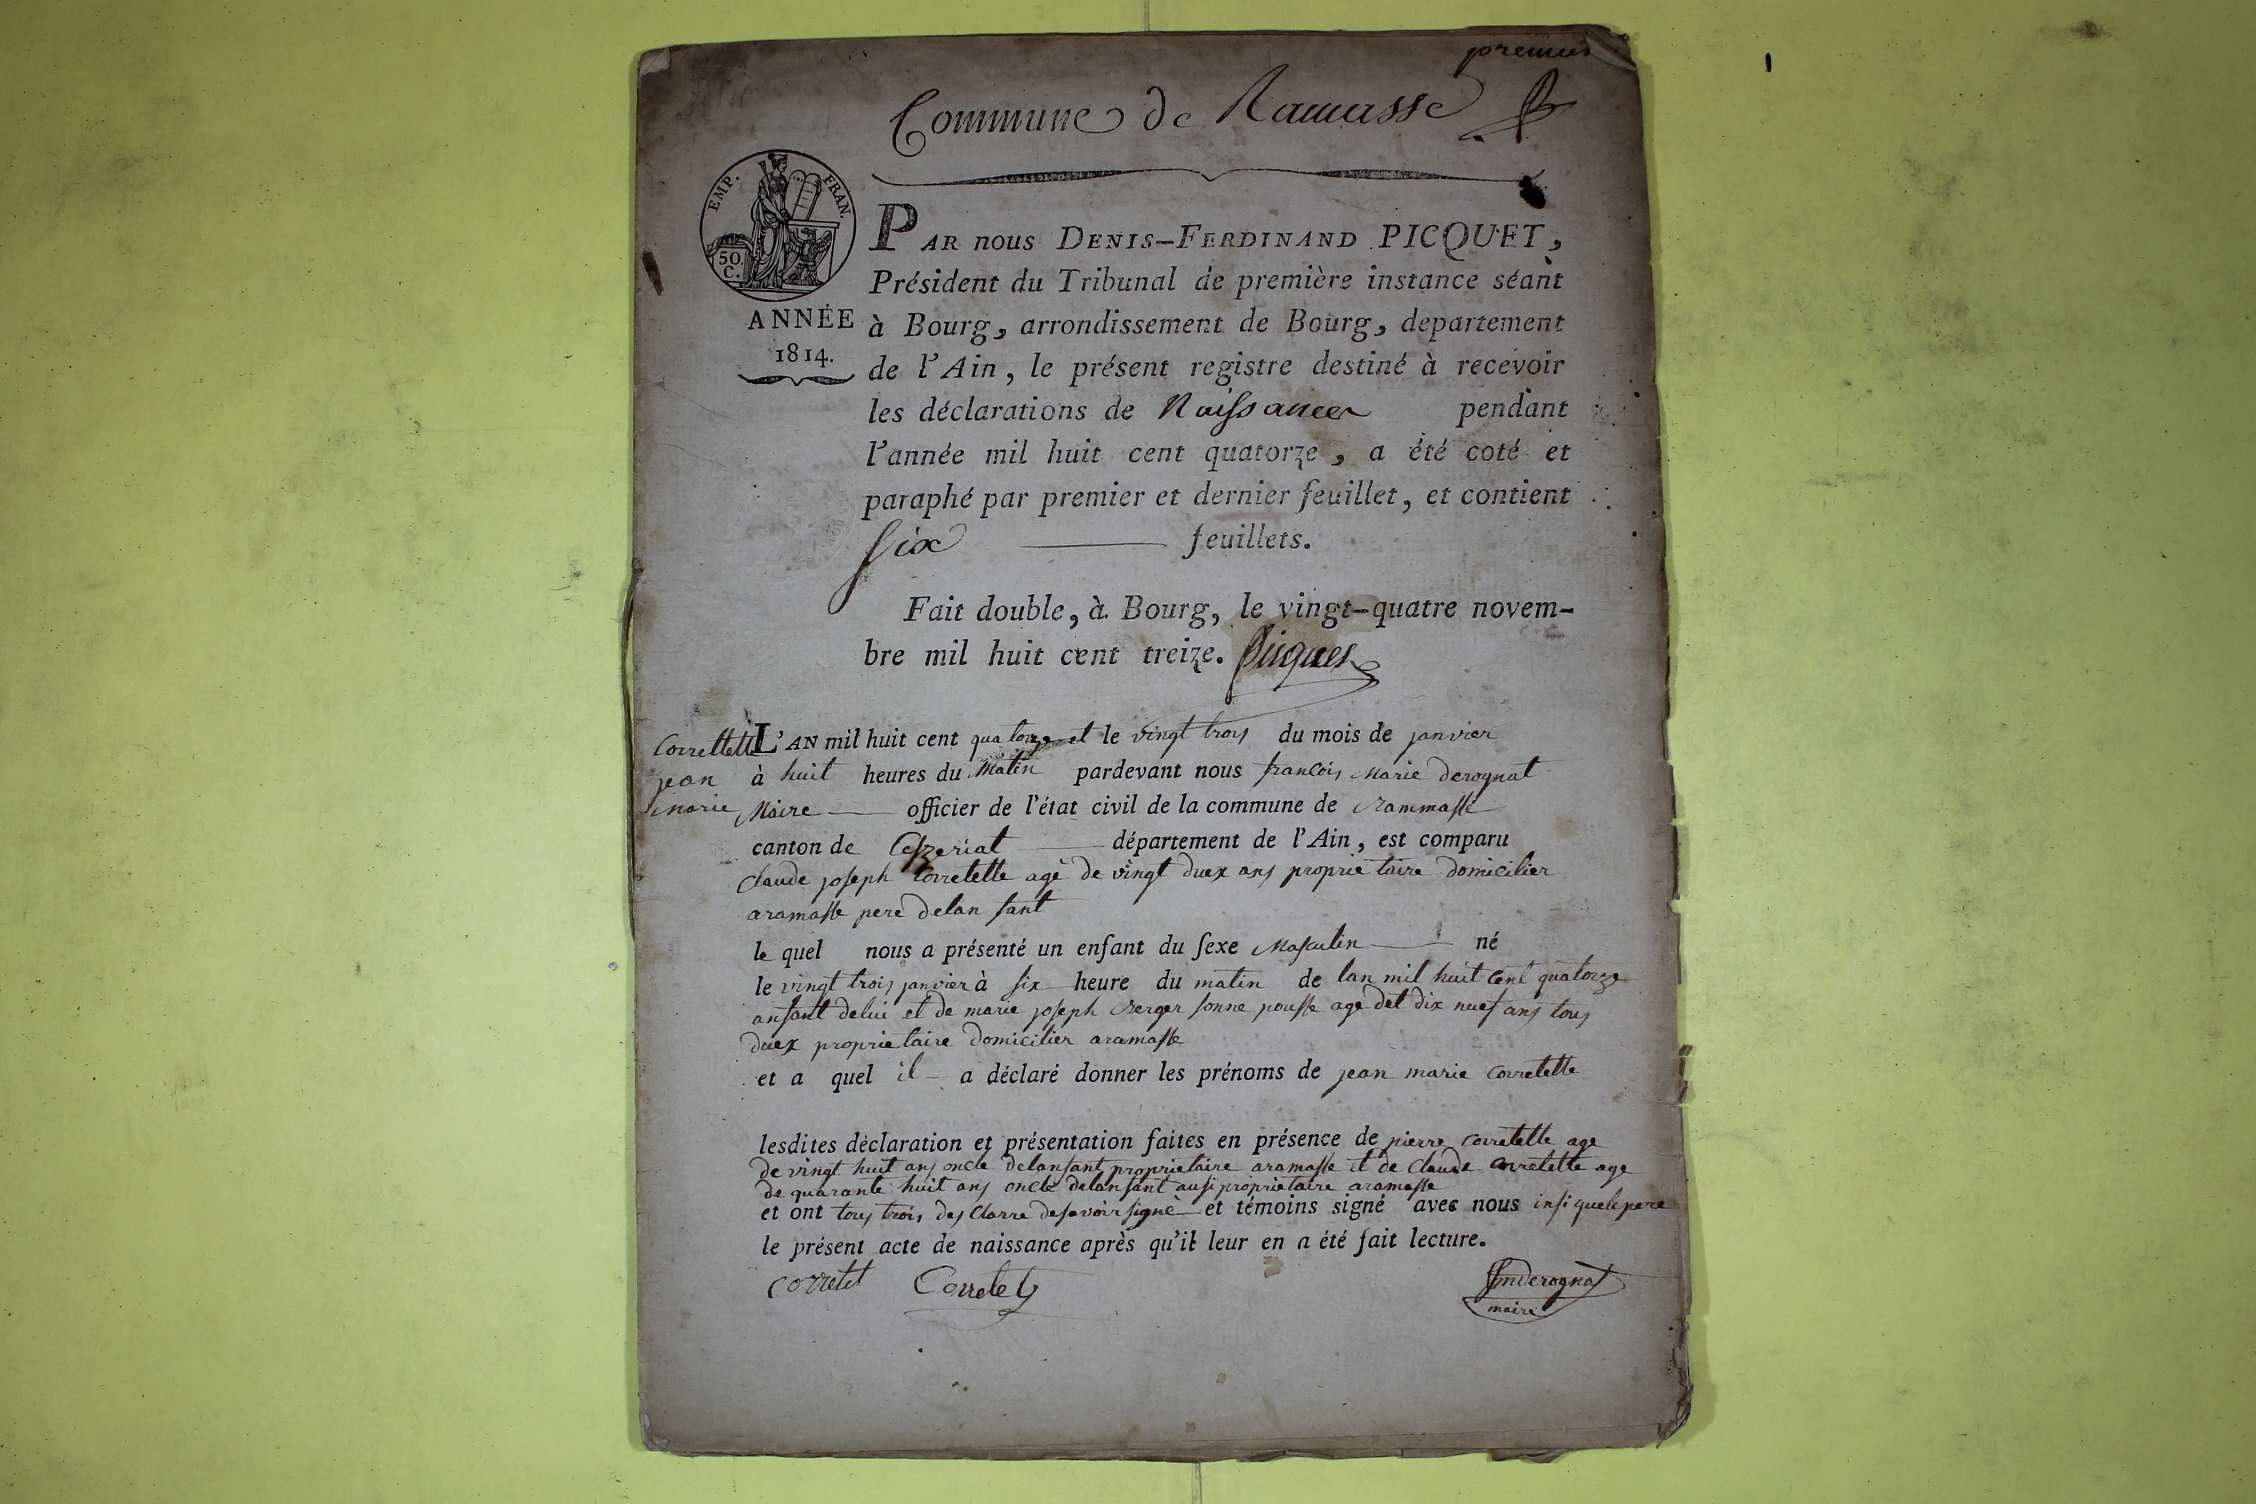 premier
Commune de Ramasse
EMP. FRAN.
50. C.
ANNÉE
1814.
PAR nous DENIS-FERDINAND PICQUET,
Président du Tribunal de première instance séant
à Bourg, arrondissement de Bourg, departement
de l'Ain, le présent registre destiné à recevoir
les déclarations de Naissances pendant
l'année mil huit cent quatorze, a été coté et
paraphé par premier et dernier feuillet, et contient
Six feuillets.
Fait double, à Bourg, le vingt-quatre novem-
bre mil huit cent treize. Picquet
Correttette
jean
marie
L'AN mil huit cent quatorze et le vingt trois du mois de janvier
à huit heures du Matin pardevant nous francois Marie derognat
Maire officier de l'état civil de la commune de rammasse
canton de Ceszeriat département de l'Ain, est comparu
Claude joseph Corretette agé de vingt duex ans proprietaire domicilier
aramasse pere delan fant
le quel nous a présenté un enfant du sexe Masculin né
le vingt trois janvier à six heure du matin de lan mil huit cent quatorze
anfant delui et de marie joseph sonne pousse age det dix nuef ans tous
duex proprietaire domicilier aramasse
et a quel il a déclaré donner les prénoms de jean marie Corretette
lesdites déclaration et présentation faites en présence de pierre Corretette age
de vingt huit ans oncle delanfant proprietaire aramasse et de Claude Corretette age
de quarante huit ans oncle delanfant ausi proprietaire aramasse
et ont tous trois des Clarre desavoir signé et témoins signé avec nous insi quele pere
le présent acte de naissance après qu'il leur en a été fait lecture.
corretet Corretet fmderognat
maire